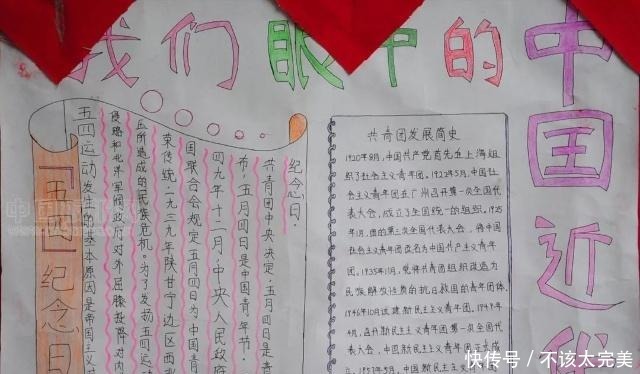 我们眼中的
中国近代
『五四』纪念日
五四运动发生的基本原因是帝国主义对
侵略和北洋军阀政府对外屈膝投降对内
所造成的民族危机。为了发扬五四运
荣传统,一九三九年陕甘宁边区西
国联合会规定五月四日为中国青
四九年十二月,中央人民政府
布,五月四日是中国青年节。
共青团中央决定:五月四日是
纪念日。
共青团发展简史
1920年8月,中国共产党首先在上海组
织了社会主义青年团。1922年5月,中国
社会主义青年团在广州召开第一次全国
代表大会,成立了全国统一的组织。1925
年1月,团的第三次全国代表大会,将中国
社会主义青年团改名为中国共产主义青年
团。1935年11月,党将共青团组织改造为
民族解放性质的抗日救国的青年团体。
1946年10月试建新民主主义青年团。1949年4
月,召开新民主主义青年团第一次全国代
表大会,中国新民主主义青年团
1957年5月,中国新民主主义青年团
快传号 / 不该太完美